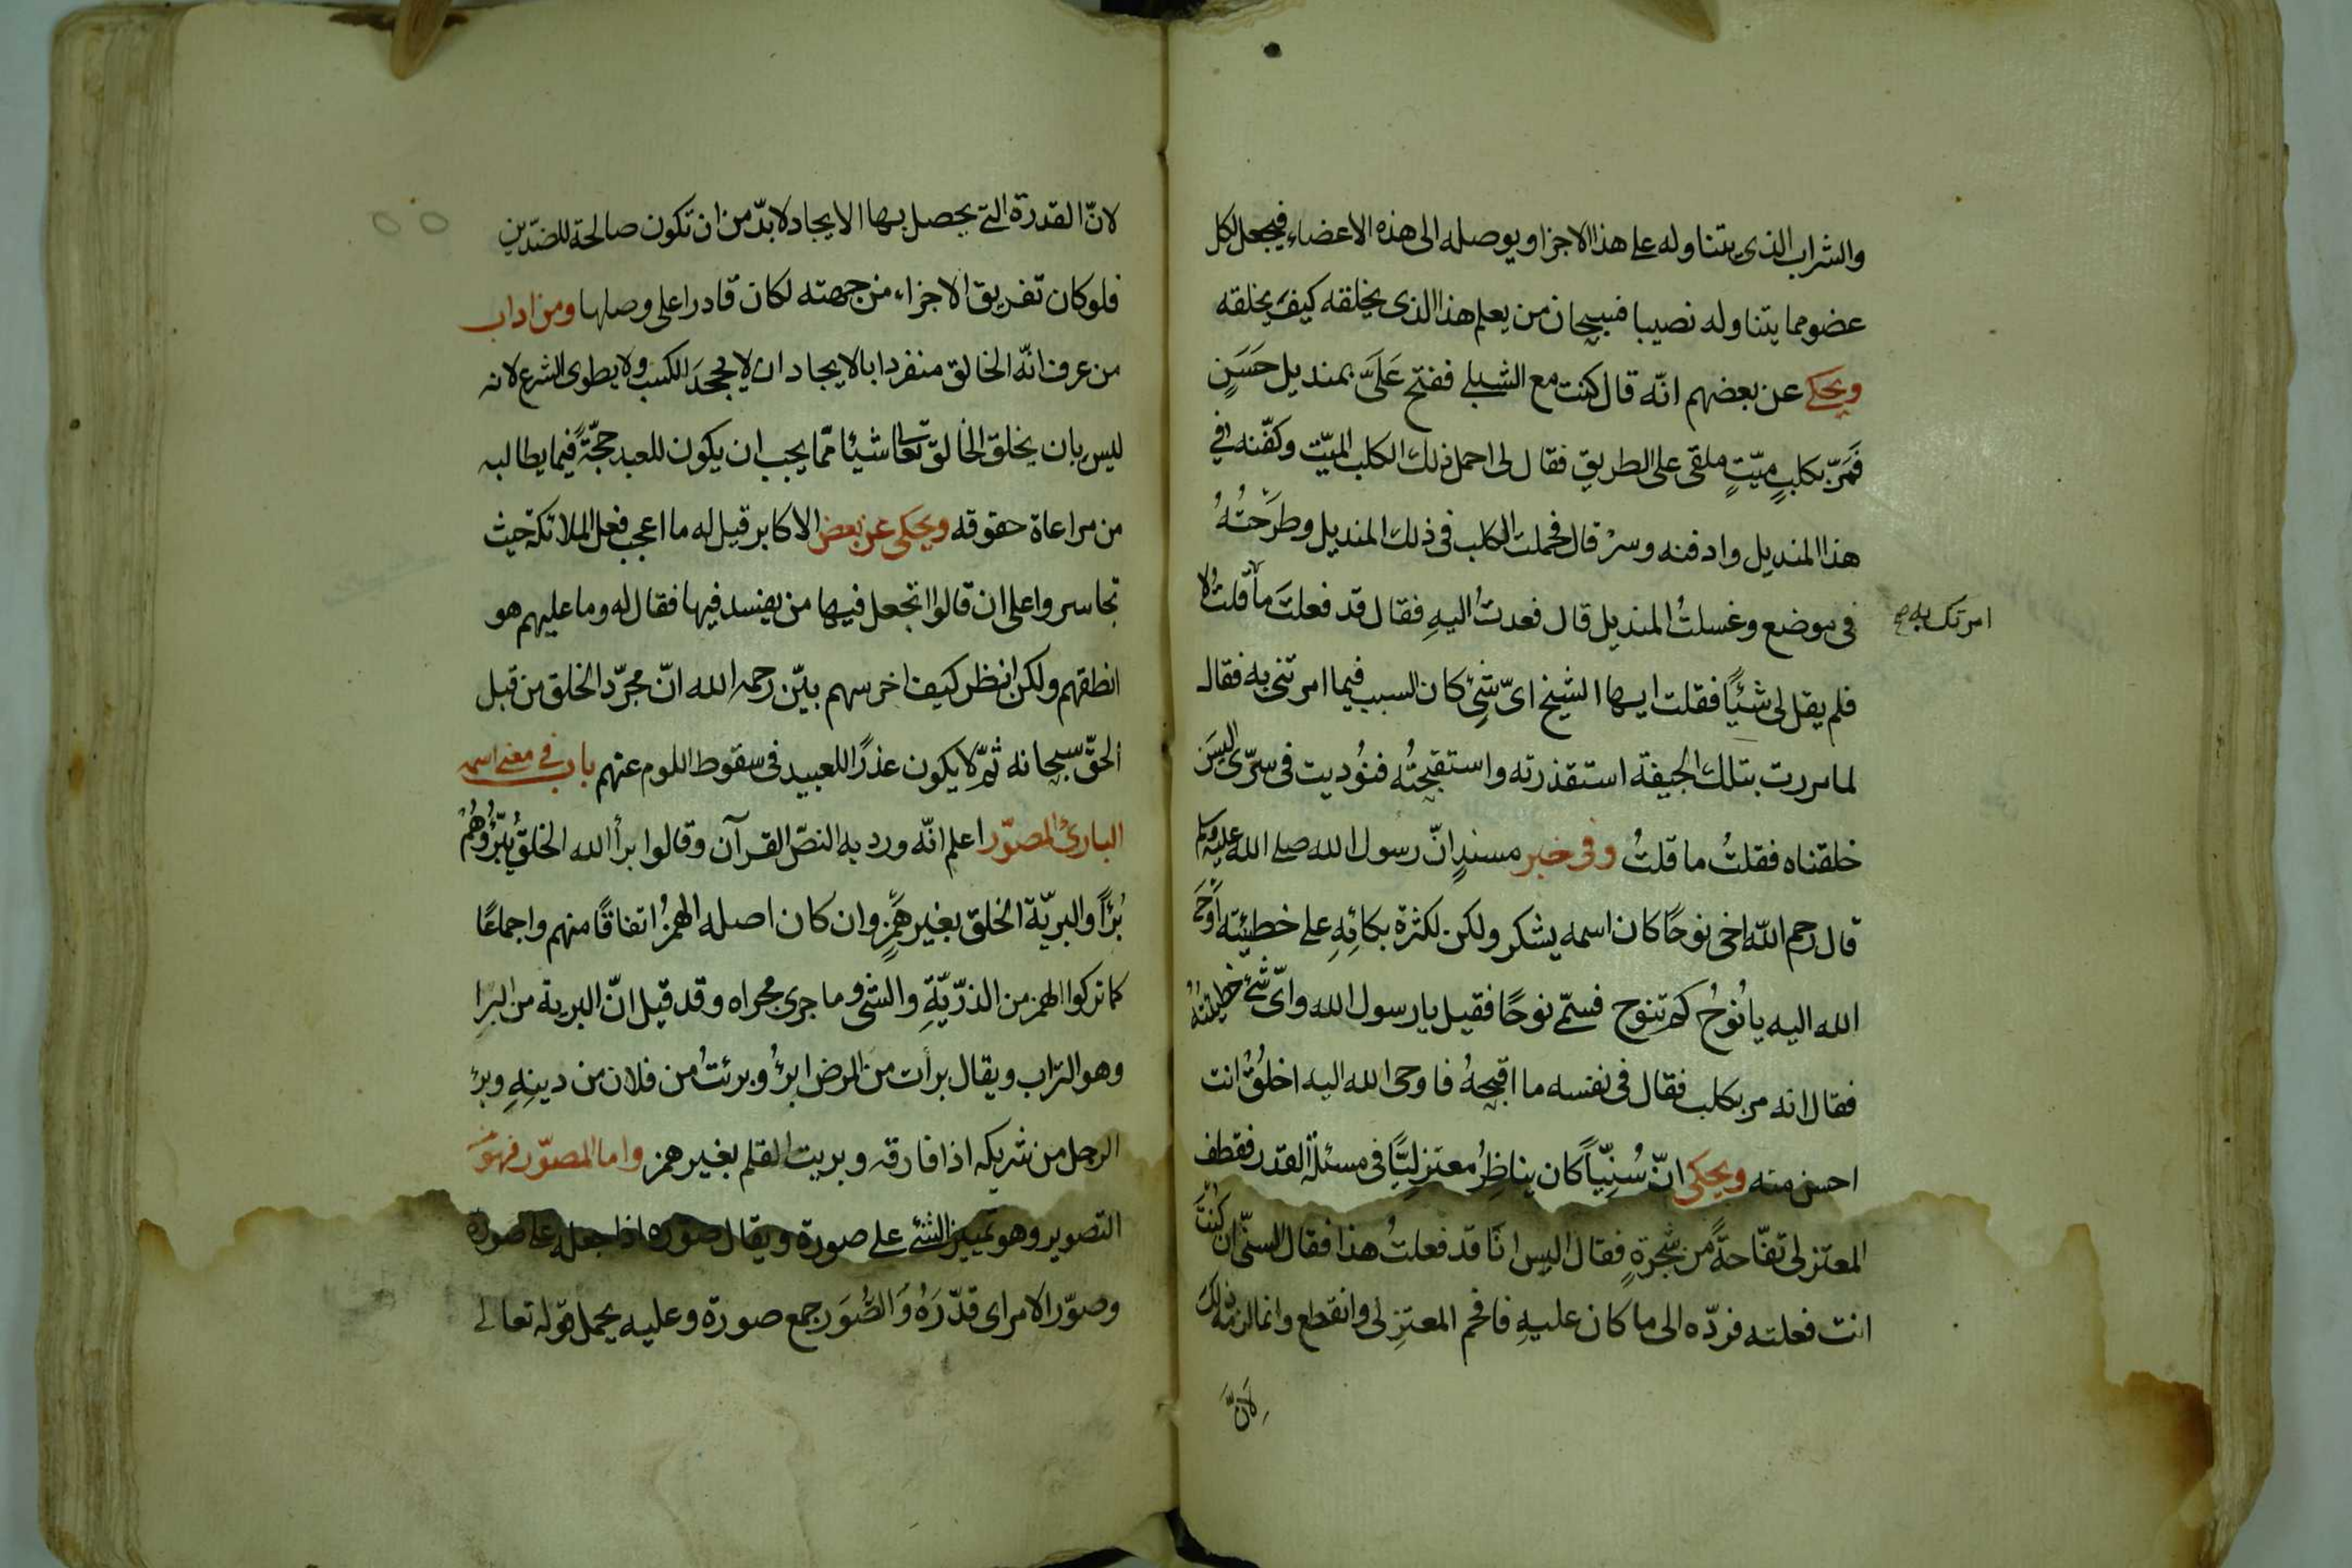 والشراب الذى يتناوله على هذا الاجزا ويوصله الى هذه الاعضاء فيجعل لكل
عضو مما يتناوله نصيبا فسبحان من يعلم هذا الذى يخلقه كيف يخلقه
ويحكى عن بعضهم انّه قال كنت مع الشبلى ففتح عَلَىَّ بمنديل حَسَنٍ
فَمَرَّ بكلبٍ ميّتٍ ملقى على الطريق فقال لى احمل ذلك الكلب الميّت وكفّنه فى
هذا المنديل وادفنه وسرْ قال فحملت الكلب فى ذلك المنديل وطرَحتُهُ
فى موضع وغسلتُ المنديل قال فعدتُ اليهِ فقال قد فعلتَ ما قلتُ لا
امرتك به صح
فلم يقل لى شئيًا فقلت ايها الشيخ اىّ شئ كان السبب فيما امرتنى به فقال
لما مررت بتلك الجيفة استقذرته واستقبحتُه فنُوديت فى سرّى اليسَ
خلقناه فقلتُ ما قلتُ وفى خبر مسندٍ انّ رسول الله صلى الله عليه وسلم
قال رحم الله اخى نوحًا كان اسمه يشكر ولكن لكثرة بكائِهِ على خطيئته اَوحَى
الله اليه يا نُوحُ كم تنوح فسمّى نوحًا فقيل يا رسول الله واىّ شئ خطيئتُهُ
فقال انه مر بكلب فقال فى نفسه ما اقبحهُ فاوحى الله اليه اخلُقْ انت
احسن منه ويحكى انّ سُنِيّاً كان يناظِرُ معتزِليًّا فى مسئلة القدر فقطف
المعتزلى تفّاحةً من شجرةٍ فقال اليس انَا قد فعلتُ هذا فقال السنّى ان كنتَ
انت فعلته فردّه الى ما كان عليهِ فافحم المعتزِلى وانقطع وانما الزمه ذلك
لانّ
لانّ القدرة التى يحصل بها الايجاد لا بدّ من ان تكون صالحة للضدّين
فلو كان تفريق الاجزاء من جهته لكان قادرا على وصلها ومن اداب
من عرف انّه الخالق منفردا بالايجاد ان لا يجحدَ الكسب ولا يطوى الشرع لانه
ليس بان يخلق الخالق تعالى شيئا ممّا يجب ان يكون للعبد حجّةً فيما يطالبه
من مراعاة حقوقه ويحكى عن بعض الاكابر قيل له ما اعجب فعل الملائكة حيث
تجاسروا على ان قالوا اتجعل فيها من يفسد فيها فقال له وما عليهم هو
انطقهم ولكن انظر كيف اخرسهم بيّن رحمه الله انّ مجرّد الخلق من قبل
الحقّ سبحانه ثمّ لا يكون عذرًا للعبيد فى سقوط اللوم عنهم باب فى معنى اسمه
البارئ المصوّر اعلم انّه ورد به النصّ القرآن وقالوا برأ الله الخلق يَبْرُؤُهُمْ
بُرْأً والبريّة الخلق بغير هَمزٍ وان كان اصله الهمزُ اتفاقًا منهم واجماعًا
كما تركوا الهمز من الذرّيّةِ والنبى وما جرى مجراه وقد قيل انّ البرية من البرا
وهو التراب ويقال برأت من المرض ابرُؤ وبرئتُ من فلان من دينِهِ وبرئ
الرجل من شريكه اذا فارقه وبريت القلم بغير همز واما المصوّر فهو من
التصوير وهو تمييز الشئ على صورة ويقال صوّره اذا جعله على صورة
وصوّر الامر اى قدّرَهُ وَالصُّوَر جمع صورة وعليه يحمل قوله تعالى